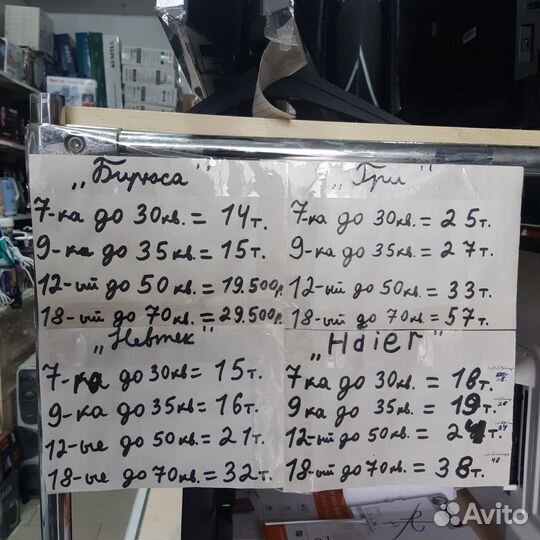 „Бирюса"
7-ка до 30кв. = 14т.
9-ка до 35кв. = 15т.
12-ый до 50кв. = 19.500р
18-ый до 70кв. = 29.500р
„Гри"
7-ка до 30кв. = 25т.
9-ка до 35кв. = 27т.
12-ый до 50кв. = 33т.
18-ый до 70кв. = 57т.
„Невтек"
7-ка до 30кв = 15т.
9-ка до 35кв = 16т.
12-ые до 50кв. = 21т.
18-ые до 70кв. = 32т.
„Haier"
7-ка до 30кв. = 18т.
9ка до 35кв. = 19т.
12-ый до 50кв. = 24т.
18-ый до 70кв. = 38т.
Avito